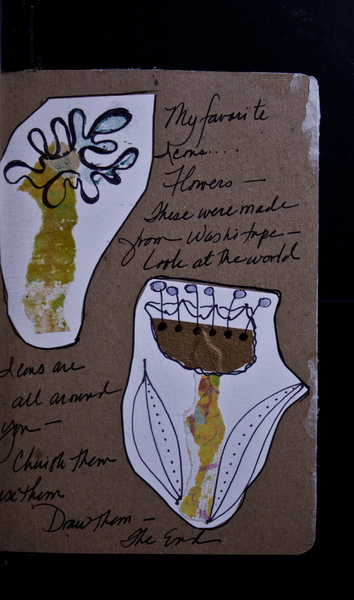 My favorite
Icons....
Flowers —
These were made
from Washi tape —
Look at the world
Icons are
all around
you —
Cherish them
use them
Draw them —
The End